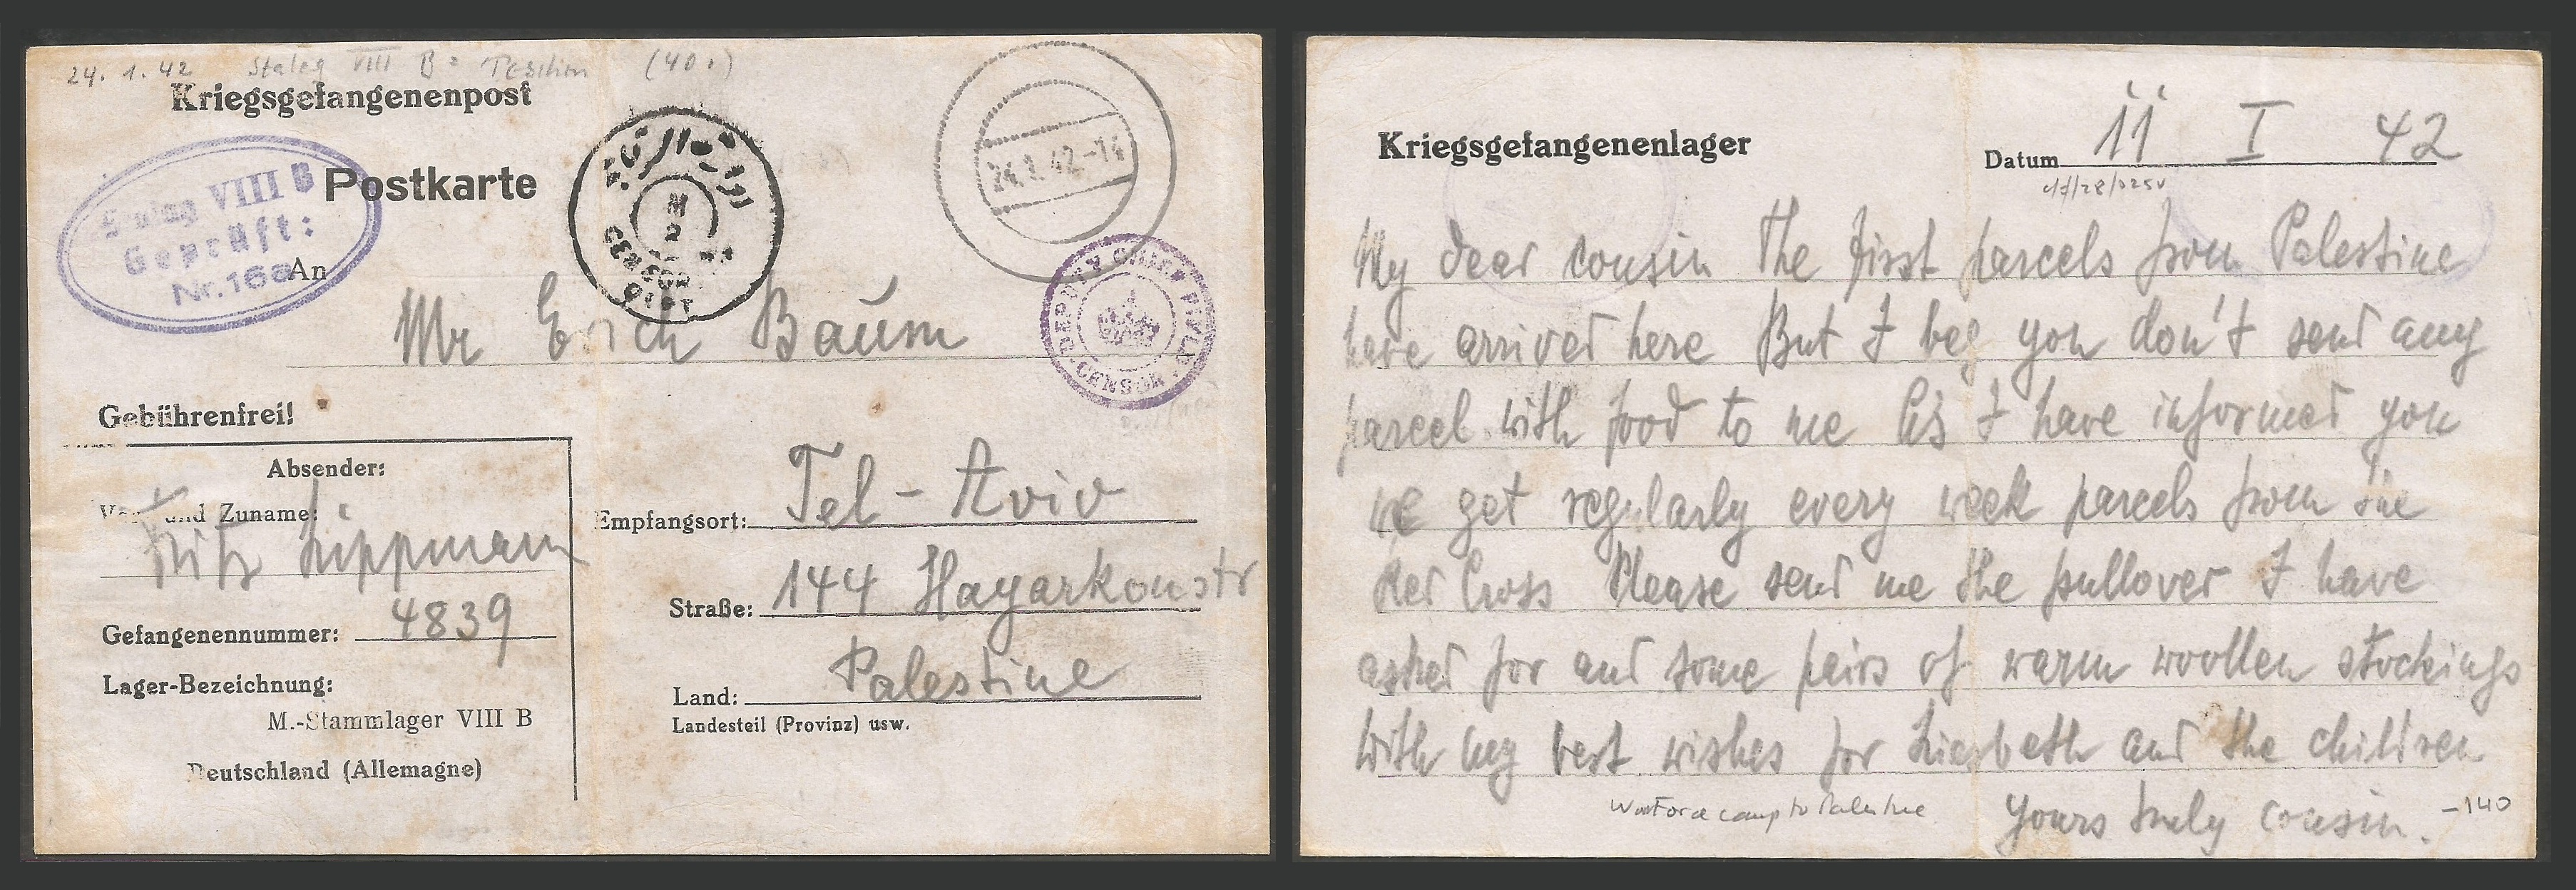 24.1.42 Stalag VIII B = (40.)
Kriegsgefangenenpost
Postkarte
VIII B
Geprüft:
Nr. 16a
CENSOR
24.1.42-14
DEPUTY CHIEF FIELD CENSOR
An
Mr Erich Baum
Gebührenfrei!
Absender:
Vor- und Zuname:
Fritz Lippmann
Gefangenennummer: 4839
Lager-Bezeichnung:
M.-Stammlager VIII B
Deutschland (Allemagne)
Empfangsort: Tel-Aviv
Straße: 144 Hayarkonstr
Land: Palestine
Landesteil (Provinz) usw.
Kriegsgefangenenlager
Datum 11 I 42
My dear cousin The first parcels from Palestine
have arrived here But I beg you don't send any
parcel with food to me As I have informed you
we get regularly every week parcels from the
Red Cross Please send me the pullover I have
asked for and some pairs of warm woollen stockings
With my best wishes for Liesbeth and the children
yours truly cousin.
camp to Palestine
-140